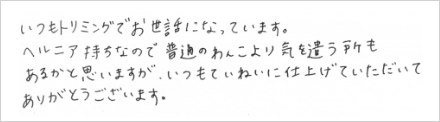 いつもトリミングでお世話になっています。
ヘルニア持ちなので普通のわんこより気を遣う所も
あるかと思いますが、いつもていねいに仕上げていただいて
ありがとうございます。